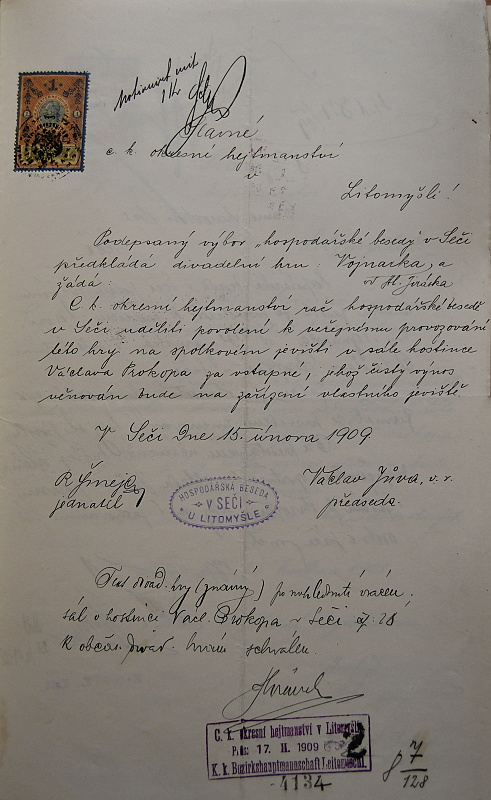 1
notionirt mit
1 Kr
Slavné
c. k. okresní hejtmanství
v
Litomyšli!
Podepsaný výbor „hospodářské besedy" v Seči
předkládá divadelní hru: Vojnarka, a
od Al. Jiráska
žádá:
C. k. okresní hejtmanství rač hospodářské besedě
v Seči uděliti povolení k veřejnému provozování
této hry na spolkovém jevišti v sále hostince
Václava Prokopa za vstupné, jehož čistý výnos
věnován bude na zařízení vlastního jeviště.
V Seči Dne 15. února 1909
R Šmejc
jednatel
HOSPODÁŘSKÁ BESEDA
V SEČI
U LITOMYŠLE
Václav Jůva, v. r.
předseda.
Text divad. hry (známý) po nahlednutí vrácen.
sál v hostinci Vacl. Prokopa v Seči čp. 28
k občas. divad. hrám schválen.
C. k. okresní hejtmanství v Litomyšli
Pr. 17. II. 1909
2
K. k. Bezirkshauptmannschaft Leitomischl.
4134
8 7/128